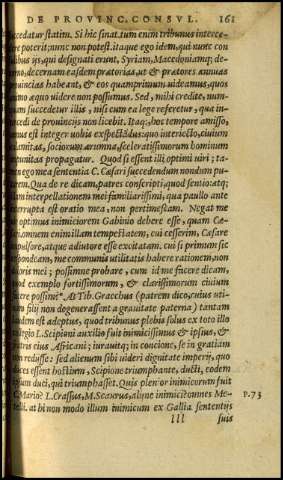 DE PROVINC. CONSVL. 161
succedatur statim. Si hic sinat.tum enim tribunus interce-
dere poterit; nunc non potest.itaque ego idem, qui nunc con
sulibus ijs, qui designati erunt, Syriam, Macedoniamq; de-
cerno, decernam easdem pretorias, ut & pretores annuas
prouincias habeant, & eos quamprimum uideamus, quos
animo æquo uidere non possumus. Sed, mihi credite, nun-
quam succedetur illis, nisi cum ea lege referetur, qua in-
tercedi de prouincijs non licebit. Itaq; hoc tempore amisso,
annus est integer uobis exspectādus: quo interiecto, ciuium
calamitas, sociorum ærumna, sceleratissimorum hominum
impunitas propagatur. Quod si essent illi optimi uiri; ta-
men ego mea sententia C. Cæsari succedendum nondum pu-
tarem. Qua de re dicam, patres conscripti, quod sentio: atq;
illam interpellationem mei familiarissimi, qua paullo ante
interrupta est oratio mea, non pertimescam. Negat me
uir optimus inimiciorem Gabinio debere esse, quam Cæ-
sari. omnem enim illam tempestatem, cui cesserim, Cæsare
impulsore, atque adiutore esse excitatam. cui si primum sic
respondeam, me communis utilitatis habere rationem, non
doloris mei; possimne probare, cum id me facere dicam,
quod exemplo fortissimorum, & clarissimorum ciuium
facere possim? At Tib. Gracchus (patrem dico, cuius uti-
nam filij non degenerassent a grauitate paterna) tantam
laudem est adeptus, quod tribunus plebis solus ex toto illo
collegio L. Scipioni auxilio fuit inimicissimus & ipsius, &
fratris eius Africani; iurauitq; in concione, se in gratiam
non redisse: sed alienum sibi uideri dignitate imperij, quo
duces essent hostium, Scipione triumphante, ducti, eodem
ipsum duci, qui triumphasset. Quis plenior inimicorum fuit
C. Mario? L. Crassus, M. Scaurus, alieni? inimici omnes Me-
telli. at hi non modo illum inimicum ex Gallia sententijs
p.73
lll suis